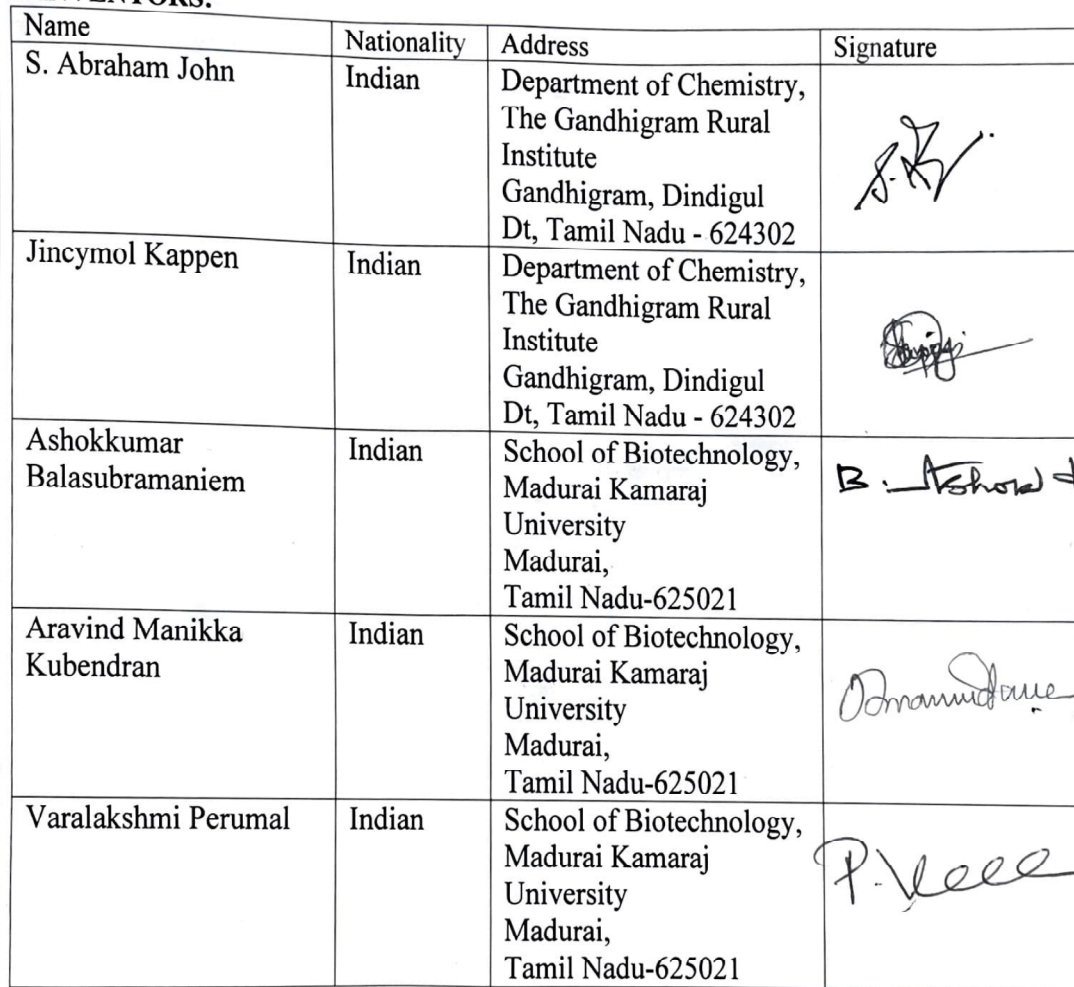 Name
Nationality
Address
Signature
S. Abraham John
Indian
Department of Chemistry,
The Gandhigram Rural
Institute
Gandhigram, Dindigul
Dt, Tamil Nadu - 624302
Jincymol Kappen
Indian
Department of Chemistry,
The Gandhigram Rural
Institute
Gandhigram, Dindigul
Dt, Tamil Nadu - 624302
Ashokkumar
Balasubramaniem
Indian
School of Biotechnology,
Madurai Kamaraj
University
Madurai,
Tamil Nadu-625021
B. Ashok
Aravind Manikka
Kubendran
Indian
School of Biotechnology,
Madurai Kamaraj
University
Madurai,
Tamil Nadu-625021
Varalakshmi Perumal
Indian
School of Biotechnology,
Madurai Kamaraj
University
Madurai,
Tamil Nadu-625021